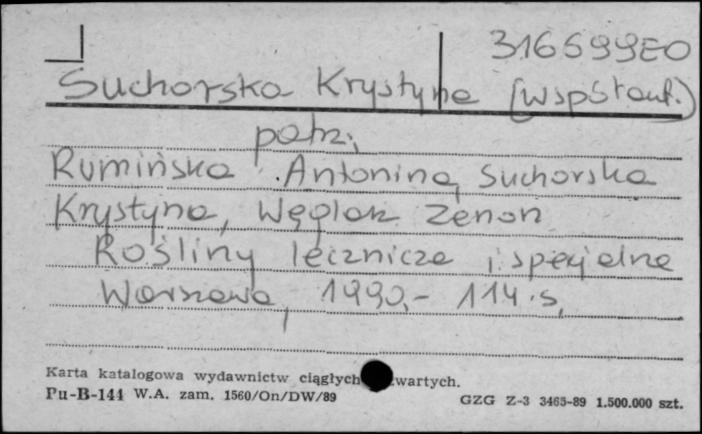 316599EO
Suchorska Krystyna (współaut.)
patrz:
Rumińska Antonina, Suchorska
Krystyna, Węglarz Zenon
Rośliny lecznicze i specjalne
Warszawa, 1990.- 114 s.
Karta katalogowa wydawnictw ciągłych wartych.
Pu-B-144 W.A. zam. 1560/On/DW/89
GZG Z-3 3465-89 1.500.000 szt.